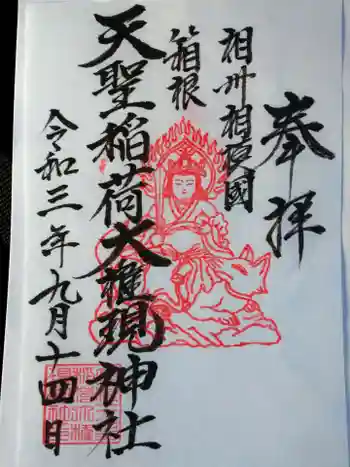 奉拝
相州相模國
箱根
天聖稲荷大権現神社
令和三年九月十四日